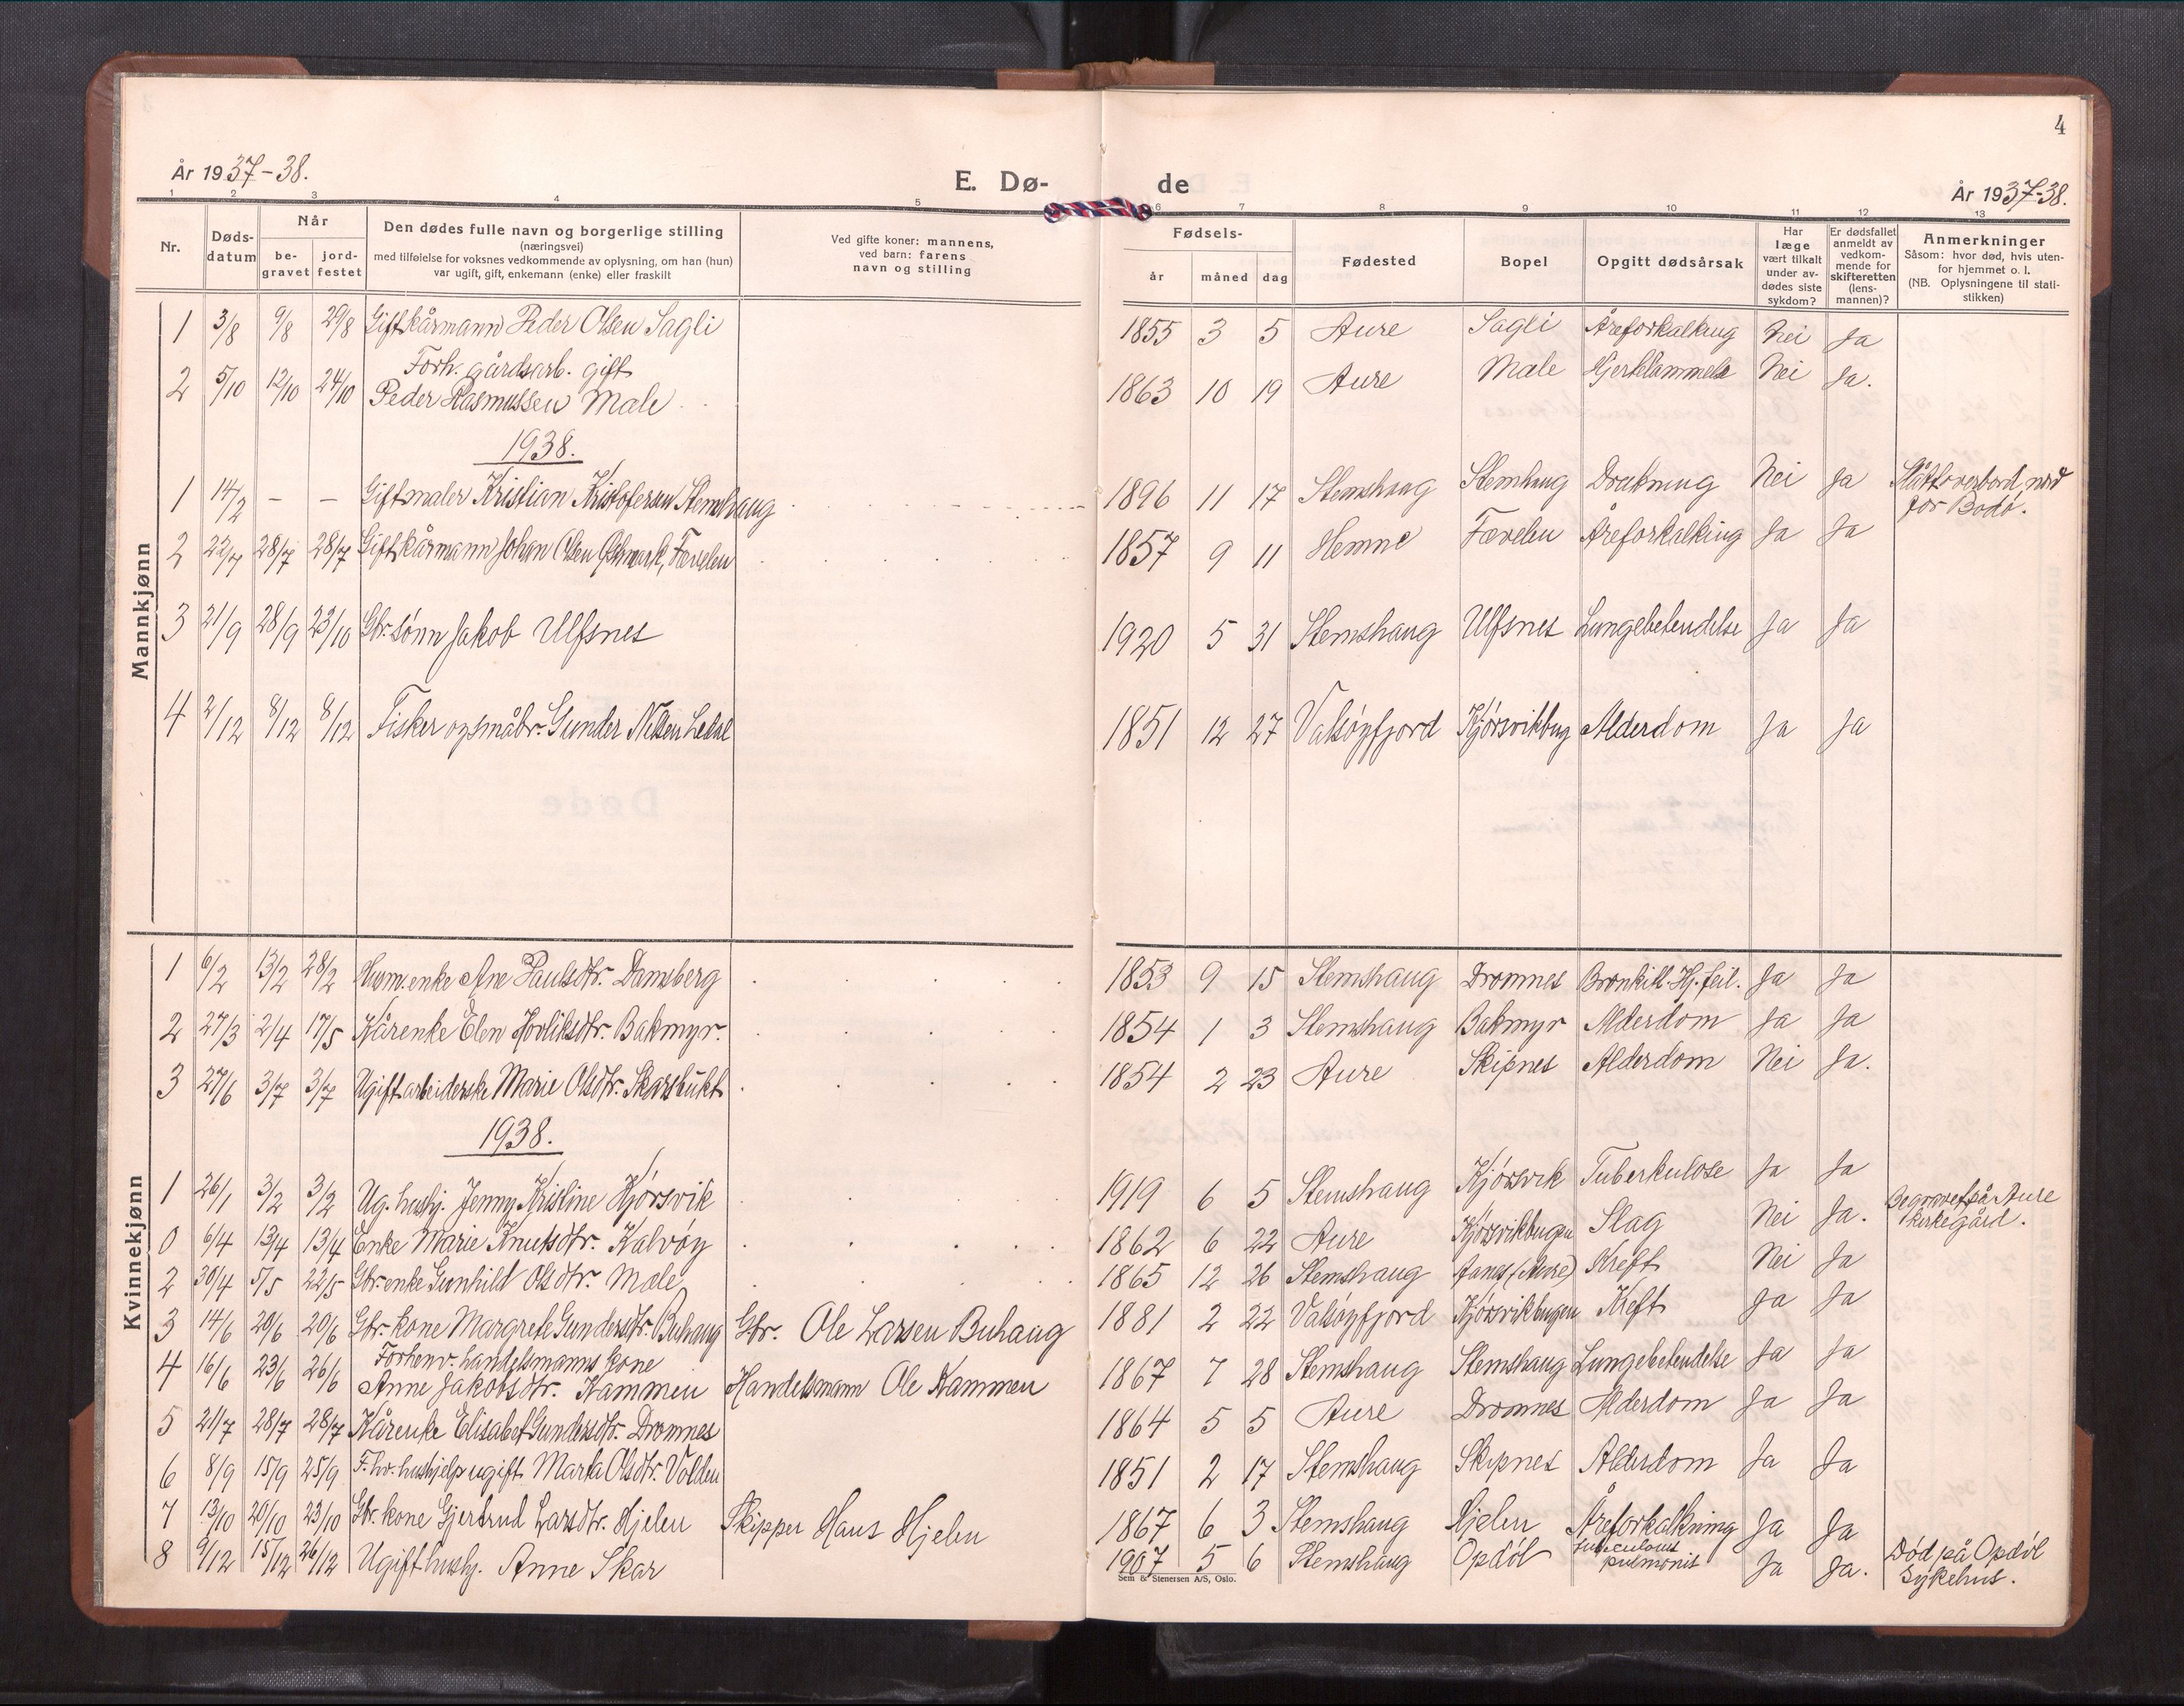 4
År 1937-38.
E. Dø-
de
År 1937-38.
1 2 3 4 5 6 7 8 9 10 11 12 13
Nr.
Døds-
datum
Når
be-
gravet
jord-
festet
Den dødes fulle navn og borgerlige stilling
(næringsvei)
med tilføielse for voksnes vedkommende av oplysning, om han (hun)
var ugift, gift, enkemann (enke) eller fraskilt
Ved gifte koner: mannens,
ved barn: farens
navn og stilling
Fødsels-
år måned dag
Fødested
Bopel
Opgitt dødsårsak
Har
læge
vært tilkalt
under av-
dødes siste
sykdom?
Er dødsfallet
anmeldt av
vedkom-
mende for
skifteretten
(lens-
mannen)?
Anmerkninger
Såsom: hvor død, hvis uten-
for hjemmet o. l.
(NB. Oplysningene til stati-
stikken)
Mannkjønn
1 3/8 9/8 29/8 Gift kårmann Peder Olsen Sagli 1855 3 5 Aure Sagli Åreforkalkning Nei Ja
Forh. gårdsarb. gift
2 5/10 12/10 24/10 Peder Rasmussen Male 1863 10 19 Aure Male Hjertelammelse Nei Ja.
1938.
1 14/2 - - Gift maler Kristian Kristofersen Stemshaug 1896 11 17 Stemshaug Stemshaug Drukning Nei Ja Slått overbord nord
for Bodø.
2 22/7 28/7 28/7 Gift kårmann Johan Olsen Færelen 1857 9 11 Hemne Færelen Åreforkalking Ja Ja
3 21/9 28/9 23/10 Gbr. sønn Jakob Ulfsnes 1920 5 31 Stemshaug Ulfsnes Lungebetendelse Ja Ja
4 2/12 8/12 8/12 Fisker og småbr. Gunder Nilsen Ledal 1851 12 27 Valsøyfjord Kjørsvikbug Alderdom Ja Ja
Kvinnekjønn
1 6/2 13/2 28/2 Husm.enke Ane Paulsdtr. Damsberg 1853 9 15 Stemshaug Dromnes Bronkitt. Hj. feil. Ja Ja
2 27/3 2/4 17/5 Kårenke Elen Bakmyr. 1854 1 3 Stemshaug Bakmyr Alderdom Ja Ja
3 27/6 3/7 3/7 Ugift arbeiderske Marie Olsdtr. Skarsbukt 1854 2 23 Aure Skipnes Alderdom Nei Ja.
1938.
1 26/1 3/2 3/2 Ug. hushj. Jenny Kristine Kjørsvik 1919 6 5 Stemshaug Kjørsvik Tuberkulose Ja Ja
0 6/4 13/4 13/4 Enke Marie Knutsdtr. Kalvøy 1862 6 22 Aure Kjørsvikbugen Slag Nei Ja. Begravet på Aure
kirkegård.
2 30/4 5/5 22/5 Gbr. enke Gunhild Olsdtr. Male 1865 12 26 Stemshaug (Aure) Kreft Nei Ja
3 14/6 20/6 20/6 Gbr. kone Margrete Gundersdtr. Buhaug Gbr. Ole Larsen Buhaug 1881 2 22 Valsøyfjord Kjørsvikbugen Kreft Ja Ja
Forhenv. handelsmanns kone
4 16/6 23/6 26/6 Anne Jakobsdtr. Kammen Handelsmann Ole Kammen 1867 7 28 Stemshaug Stemshaug Lungebetendelse Ja Ja
5 21/7 28/7 28/7 Kårenke Elisabet Gundersdtr. Dromnes 1864 5 5 Aure Dromnes Alderdom Ja Ja
6 8/9 15/9 25/9 F.hv. hushjelp ugift Marta Olsdtr. Volden 1851 2 17 Stemshaug Skipnes Alderdom Ja Ja
7 13/10 20/10 23/10 Gbr. kone Gjertrud Larsdtr. Hjelen Skipper Hans Hjelen 1867 6 3 Stemshaug Hjelen Åreforkalkning Ja Ja
8 9/12 15/12 26/12 Ugift hushj. Anne Skar 1907 5 6 Stemshaug Opdøl pulmonis Ja Ja. Død på Opdøl
Sykehus.
Sem & Stenersen A/S, Oslo.